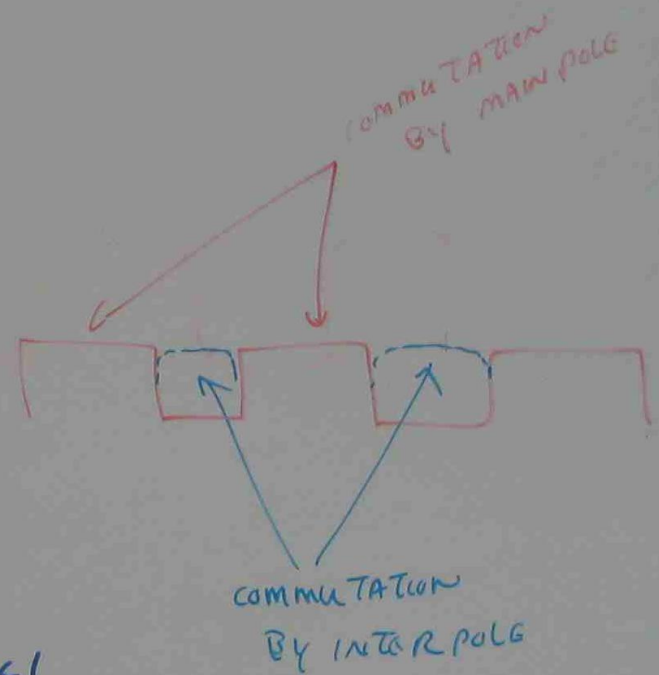 COMMUTATION
BY MAIN POLE
COMMUTATION
BY INTERPOLE